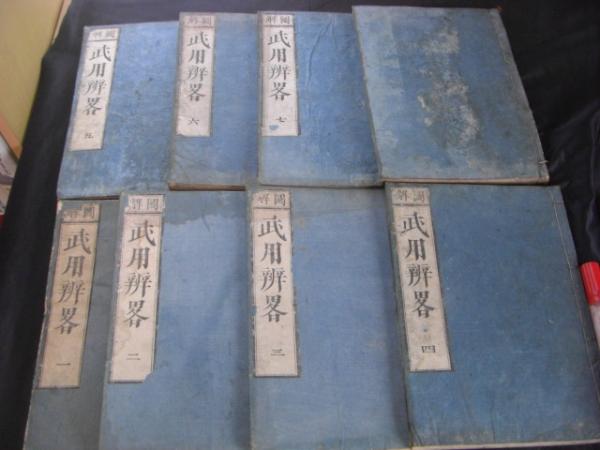 圖解
武用辨畧
五
圖解
武用辨畧
六
圖解
武用辨畧
七
圖解
武用辨畧
一
圖解
武用辨畧
二
圖解
武用辨畧
三
圖解
武用辨畧
四